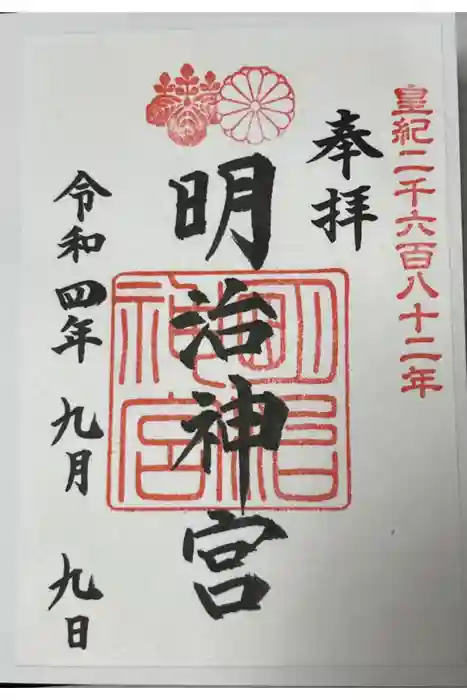 皇紀二千六百八十二年
奉拝
明治神宮
明治神宮
令和四年 九月 九日